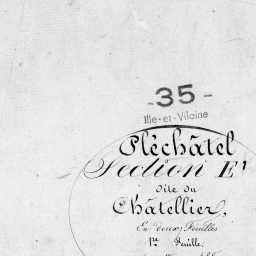 - 35 -
Ille-et-Vilaine
Pléchâtel
Section E
dite du
Châtellier,
En deux Feuilles
1re Feuille,